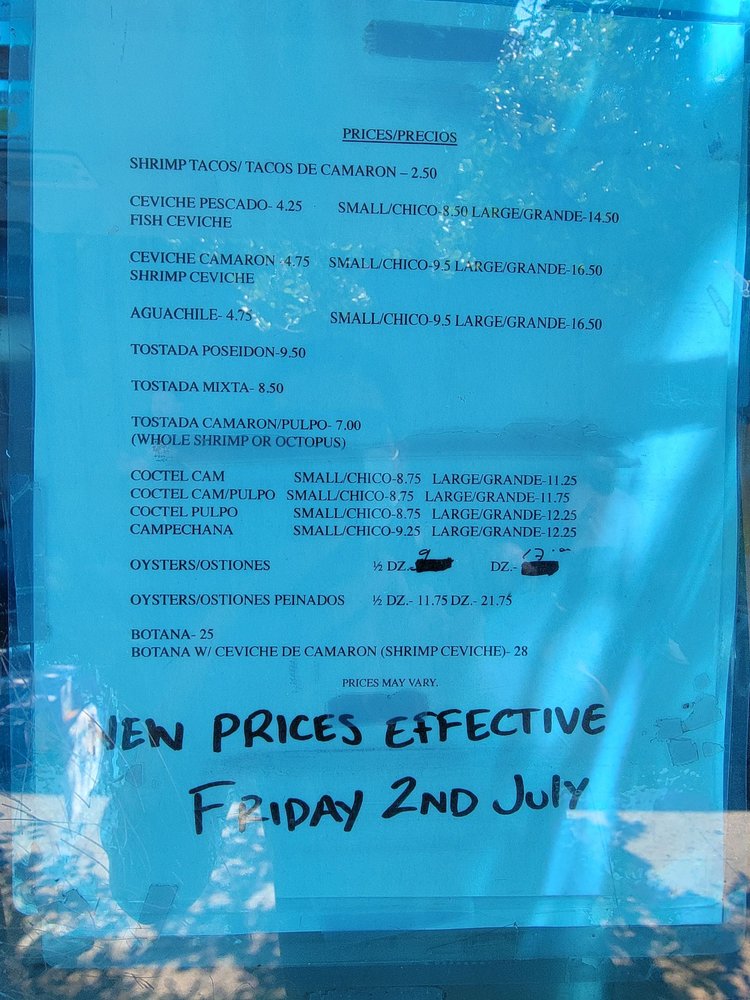 PRICES/PRECIOS
SHRIMP TACOS/ TACOS DE CAMARON – 2.50
CEVICHE PESCADO- 4.25 SMALL/CHICO-8.50 LARGE/GRANDE-14.50
FISH CEVICHE
CEVICHE CAMARON -4.75 SMALL/CHICO-9.5 LARGE/GRANDE-16.50
SHRIMP CEVICHE
AGUACHILE- 4.75 SMALL/CHICO-9.5 LARGE/GRANDE-16.50
TOSTADA POSEIDON-9.50
TOSTADA MIXTA- 8.50
TOSTADA CAMARON/PULPO- 7.00
(WHOLE SHRIMP OR OCTOPUS)
COCTEL CAM SMALL/CHICO-8.75 LARGE/GRANDE-11.25
COCTEL CAM/PULPO SMALL/CHICO-8.75 LARGE/GRANDE-11.75
COCTEL PULPO SMALL/CHICO-8.75 LARGE/GRANDE-12.25
CAMPECHANA SMALL/CHICO-9.25 LARGE/GRANDE-12.25
OYSTERS/OSTIONES ½ DZ.- 9 DZ.-
OYSTERS/OSTIONES PEINADOS ½ DZ.- 11.75 DZ.- 21.75
BOTANA- 25
BOTANA W/ CEVICHE DE CAMARON (SHRIMP CEVICHE)- 28
PRICES MAY VARY.
NEW PRICES EFFECTIVE
FRIDAY 2ND JULY